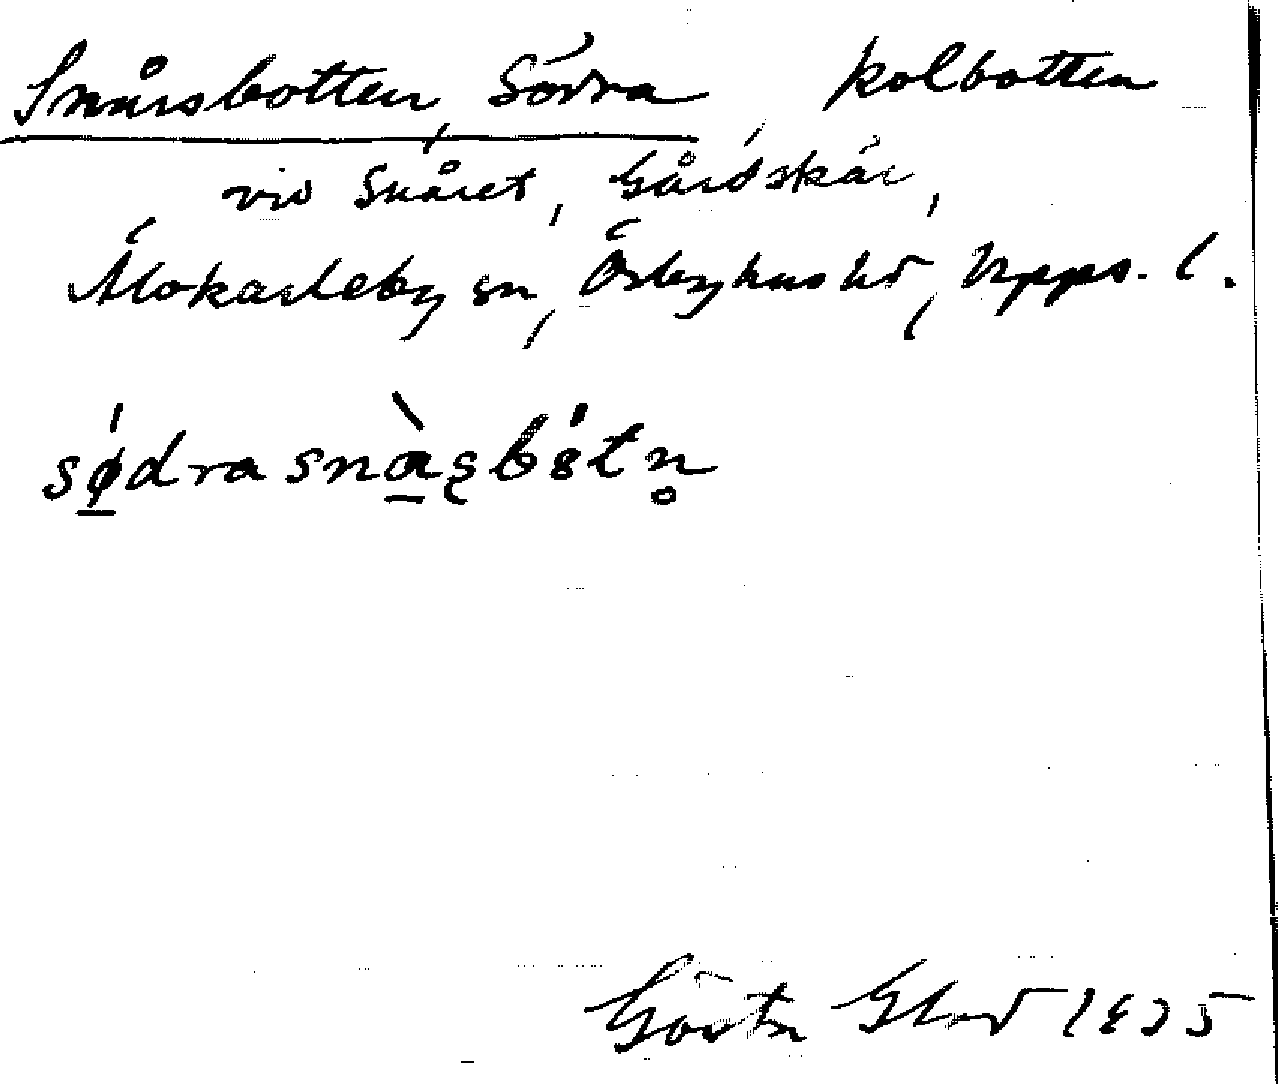 Snårsbotten, Södra, kolbotten
vid Snåret, Gårdskär,
Älvkarleby sn, Örbyhus hd, Upps. l.
sø̱̍dra snà̱ʂbötn̥
Gösta